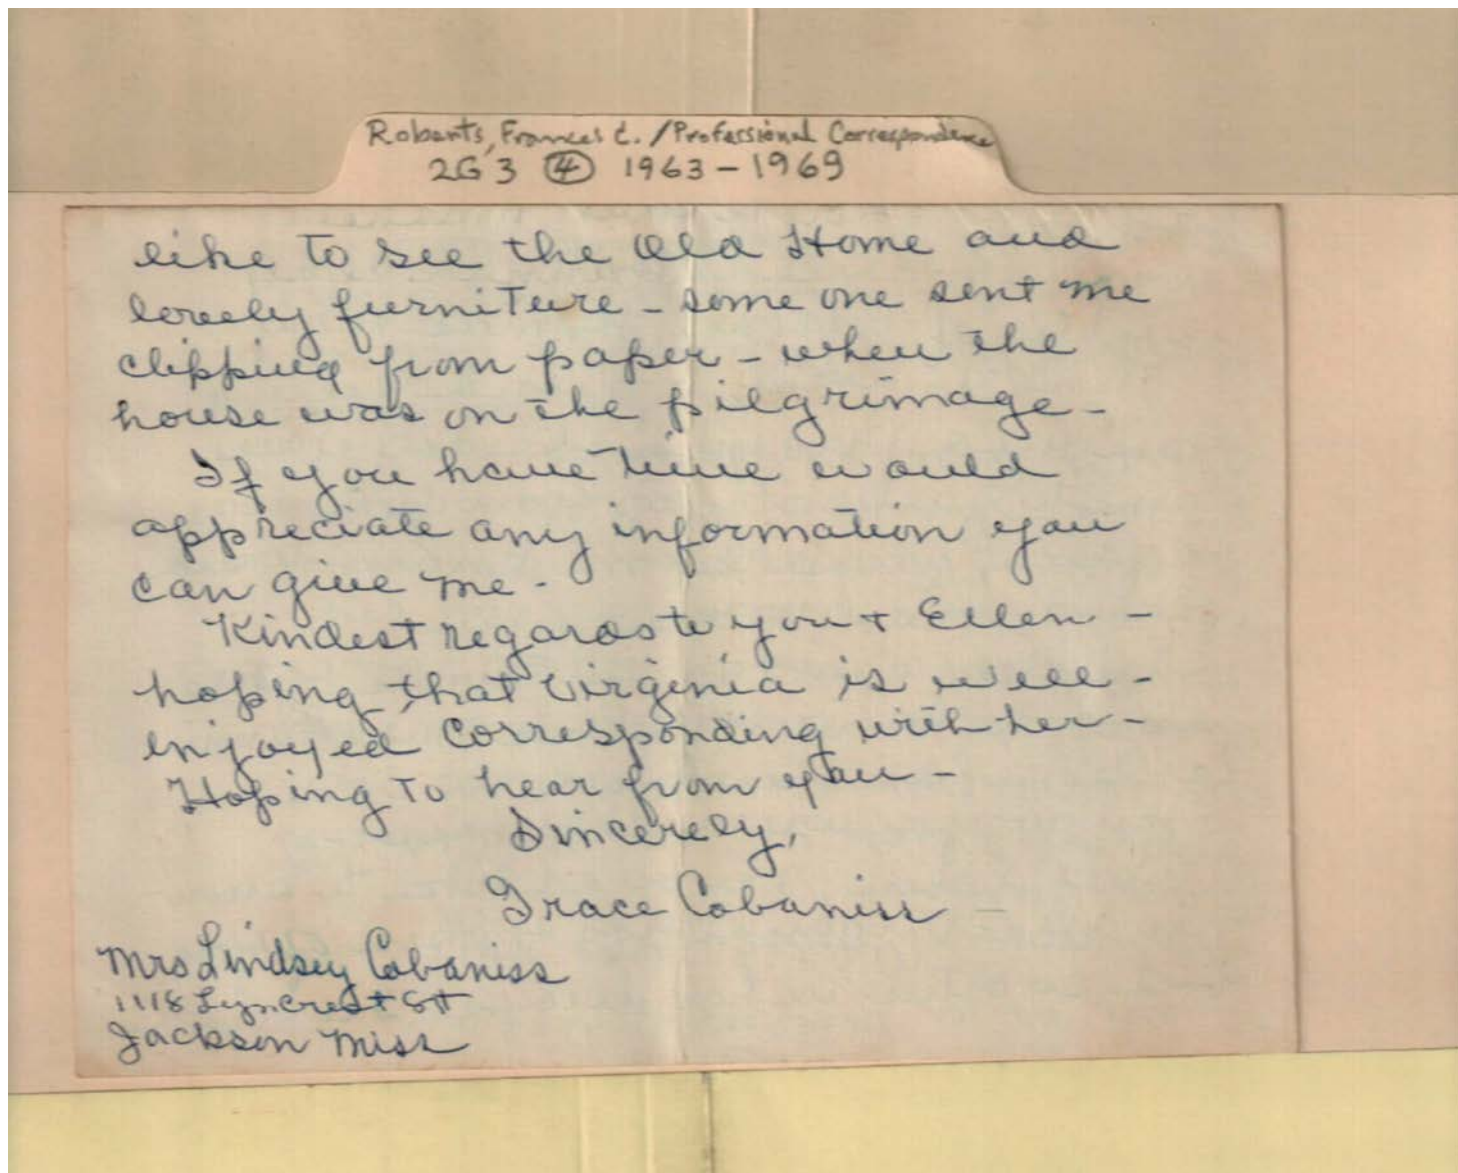 Roberts, Frances C. / Professional Correspondence
2G3 ④ 1963 – 1969
like to see the Old Home and
lovely furniture – some one sent me
clipping from paper – when the
house was on the pilgrimage –
If you have time would
appreciate any information you
can give me –
Kindest regards to you + Ellen –
hoping that Virginia is well –
enjoyed corresponding with her –
Hoping to hear from you –
Sincerely,
Grace Cabaniss –
Mrs Lindsey Cabaniss
1118 Lyncrest St
Jackson Miss